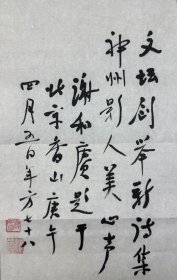 文坛创举新诗集
神州影人美心声
谢和赓题于
北京香山庚午
四月五日年方七十八